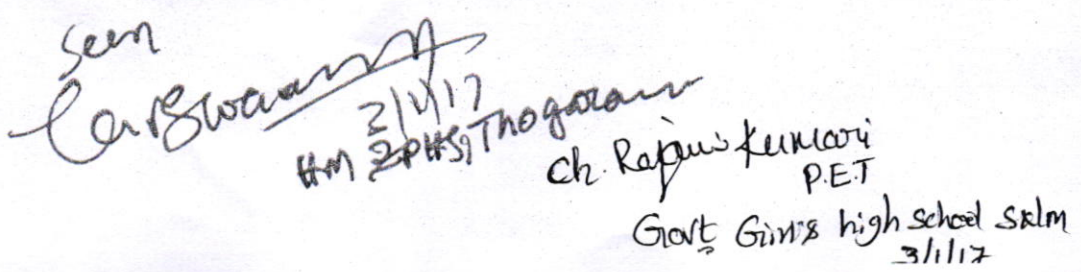 Seen
3/1/17
HM ZPHS, Thogaram
Ch. Rajani Kumari
P.E.T
Govt Girls high School Sklm
3/1/17